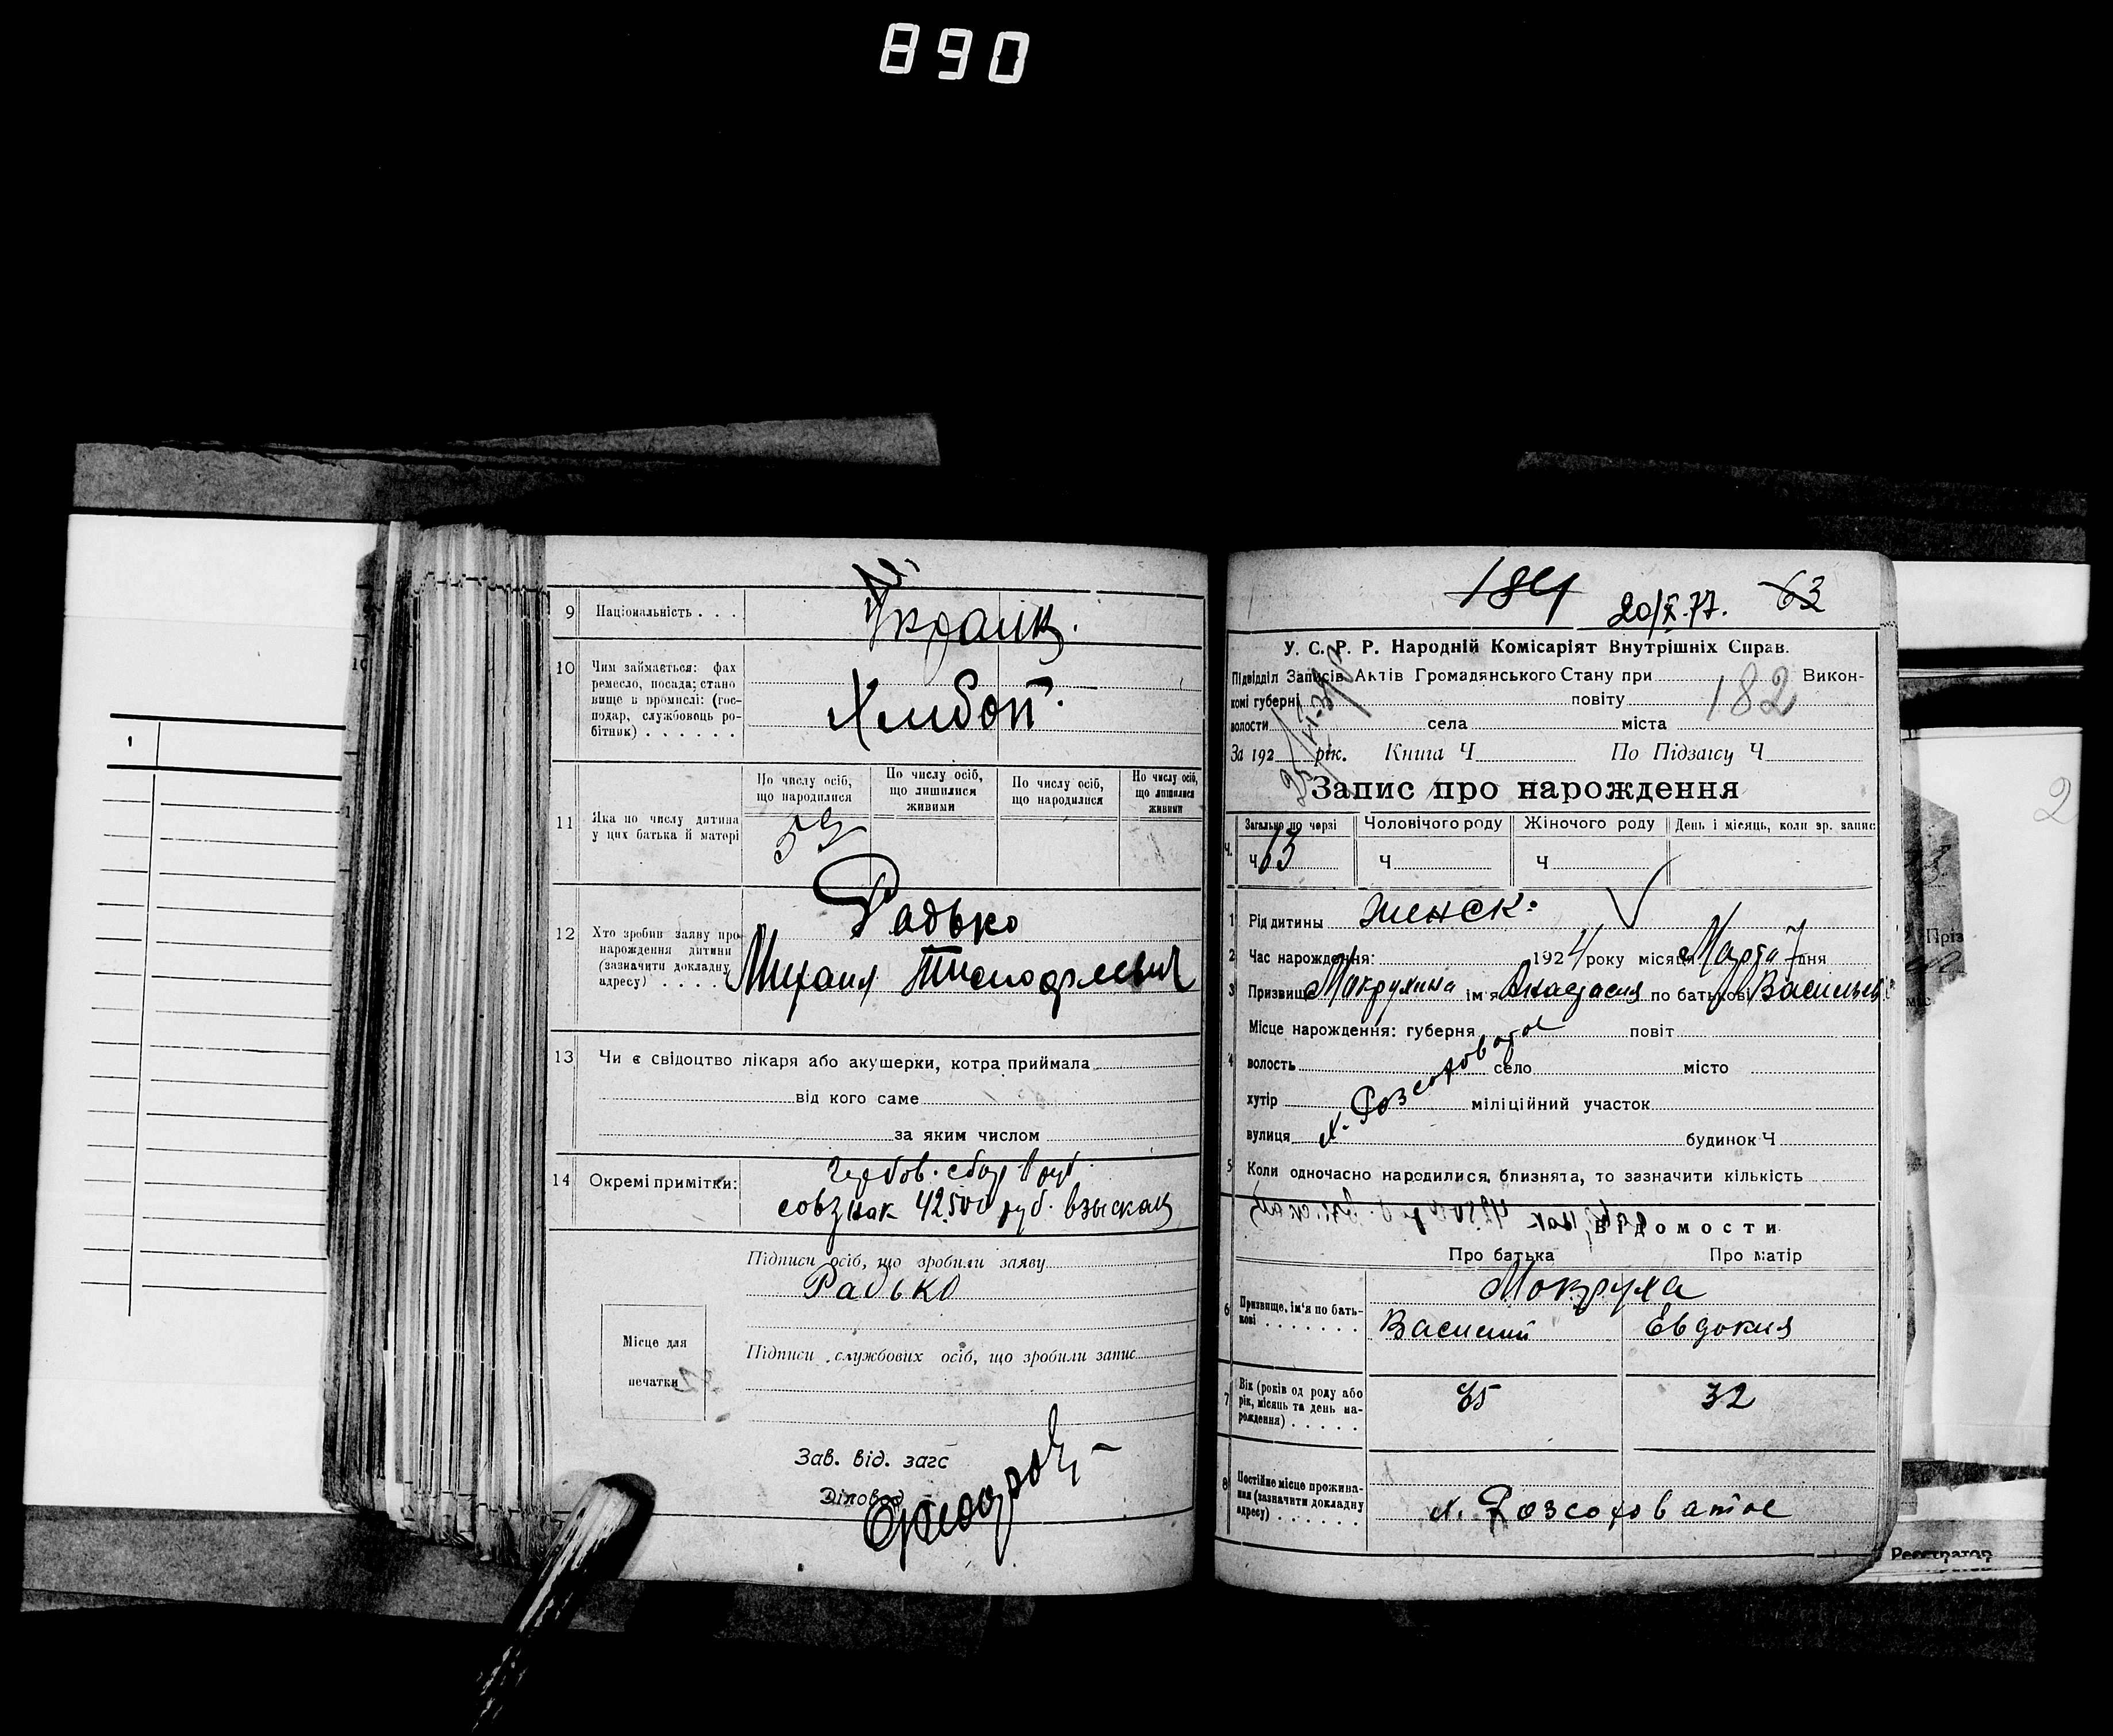 890
9 Національність . . . Украин.
10 Чим займається: фах
ремесло, посада; стано
вище в промислі: (гос-
подар, службовець ро-
бітник) . . . . . .
Хлибоп.
11 Яка по числу дитина
у цих батька й матері
По числу осіб,
що народилися
По числу осіб,
що лишилися
живими
По числу осіб,
що народилися
По числу осіб,
що лишилися
живими
12 Хто зробив заяву про
нарождення дитини
(зазначити докладну
адресу) . . . .
Радько
Михаил
13 Чи є свідоцтво лікаря або акушерки, котра приймала
від кого саме
за яким числом
14 Окремі примітки:
гербов. сбор
совзнак 42500 руб. взыскан
Підписи осіб, що зробили заяву
Радько
Місце для
печатки
Підписи службових осіб, що зробили запис
Зав. від. загс
Діловод
184 20/X.77. 63
У. С. Р. Р. Народній Комісаріят Внутрішніх Справ.
Підвідділ Записів Актів Громадянського Стану при Викон-
комі губерні повіту 182
волости села міста
За 192 рік. Книга Ч По Підзагсу Ч
Запис про нарождення
Ч.
Загально по черзі Чоловічого роду Жіночого роду День і місяць, коли зр. запис
Ч 13 Ч Ч
1 Рід дитини женск.
2 Час нарождення: 1924 року місяця Марта 7 дня
3 Призвище Мокрухина ім'я Анастасия по батькові
Місце нарождення: губерня повіт
4 волость село місто
хутір х. Розсоховатое міліційний участок
вулиця будинок Ч
5 Коли одночасно народилися, близнята, то зазначити кількість
Відомости
Про батька Про матір
6 Призвище, ім'я по бать-
кові . . . . . . .
Мокруха
Василий Евдокия
7 Вік (років од роду або
рік, місяць та день на-
рождення) . . . .
35 32
8 Постійне місце прожива-
ння (зазначити докладну
адресу) . . . . . .
х. Розсоховатое
Пріз
2
Реєстратор